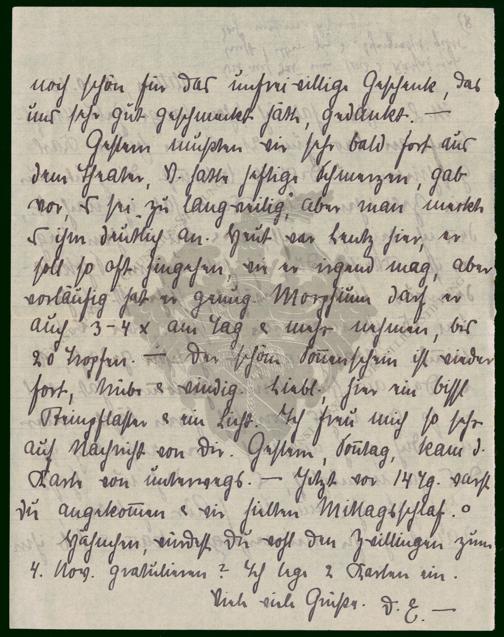 noch schön für das unfreiwillige Geschenk, das
uns sehr gut geschmeckt hätte, gedankt. —
Gestern mußten wir sehr bald fort aus
dem Theater, V. hatte heftige Schmerzen, gab
vor, es sei „zu langweilig“, aber man merkte
es ihm deutlich an. Heut war Lentz hier, er
soll so oft hingehen, wie er irgend mag, aber
vorläufig hat er genug. Morphium darf er
auch 3-4 x am Tag & mehr nehmen, bis
20 Tropfen. — Der schöne Sonnenschein ist wieder
fort, trübe & windig. Liebl, hier ein bissl
Heftpflaster & ein Licht. Ich freu mich so sehr
auf Nachricht von dir. Gestern, Sonntag, kam d.
Karte von unterwegs. — Jetzt vor 14 Tg. warst
du angekommen & wir hielten Mittagsschlaf. o
würdest Du wohl den Zwillingen zum
4. Nov. gratulieren? Ich lege 2 Karten ein.
Viele viele Grüße. D. E. —